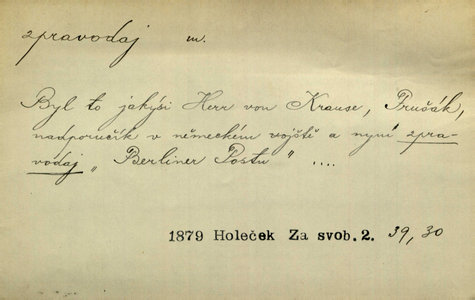 zpravodaj m.
Byl to jakýsi Herr von Krause, Prušák,
nadporučík v německém vojště a nyní zpra-
vodaj „Berliner Postu" ....
1879 Holeček Za svob. 2. 39, 30